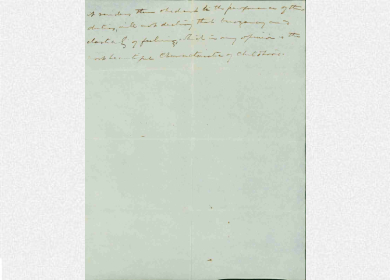 to render them obedient to the performance of their
duties, will not destroy that buoyancy and
elasticity of feeling, which in my opinion is the
characteristic of childhood.